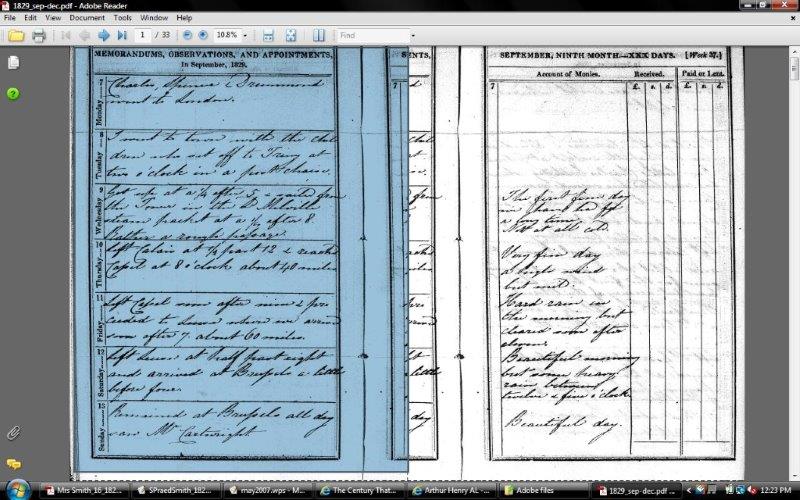 1829_sep-dec.pdf - Adobe Reader
File Edit View Document Tools Window Help
1 / 33 10.8% Find
MEMORANDUMS, OBSERVATIONS, AND APPOINTMENTS,
In September, 1829.
7 Monday
Charles, Spencer & Drummond
went to London.
8 Tuesday
I went to town with the chil
dren who set off to Tring at
two o'clock in a post chaise.
9 Wednesday
Got up at a 1/4 after 5 & sailed from
the Tower in the Ld Melville
steam packet at a 1/4 after 8
Rather a rough passage.
10 Thursday
Left Calais at 1/2 past 12 & reached
Cassel at 8 o'clock about 40 miles
11 Friday
Left Cassel soon after nine & pro
ceeded to where we arrived
soon after 7. about 60 miles.
12 Saturday
Left at half past eight
and arrived at Brussels a little
before four.
13 Sunday
Remained at Brussels all day
saw Mr Cartwright.
ENTS,
7
SEPTEMBER, NINTH MONTH—XXX DAYS. [Week 37.]
Account of Monies. Received. Paid or Lent.
£. s. d. £. s. d.
7
The first fine day
we have had for
a long time.
Not at all cold.
Very fine day
a high wind
but mild.
Hard rain in
the morning but
cleared soon after
eleven.
Beautiful morning
but some heavy
rain between
twelve & five o'clock.
Beautiful day.
Mrs Smith_16_182... SPraedSmith_182... may2007.wps - M... The Century That... Arthur Henry AL -... Adobe files 1829_sep-dec.pdf ... 12:23 PM